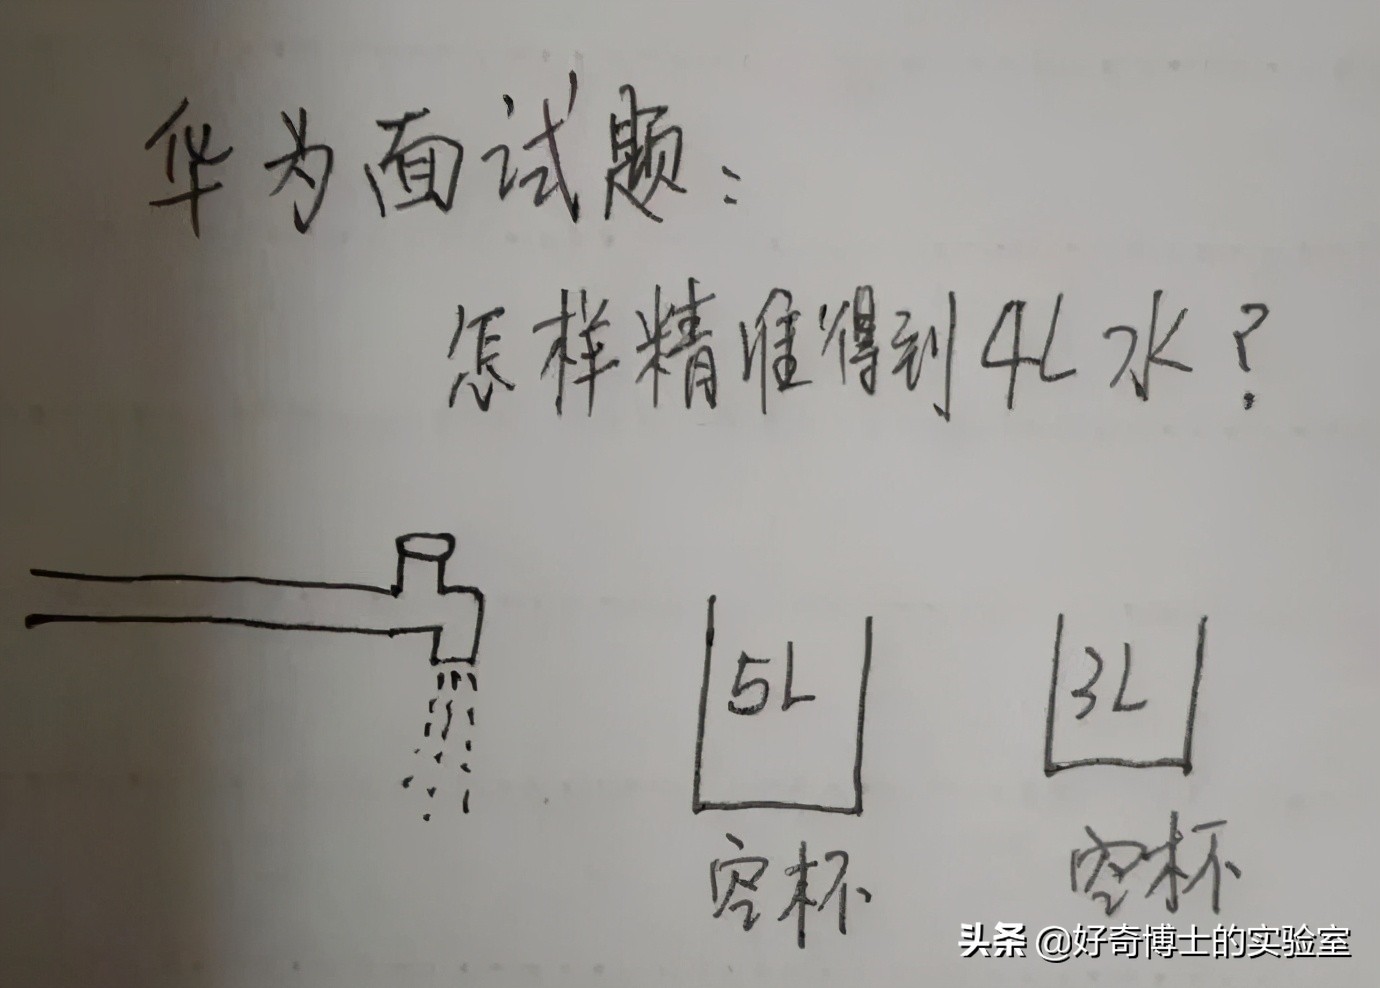 华为面试题：
怎样精准得到4L水？
5L
3L
空杯
空杯
头条 @好奇博士的实验室